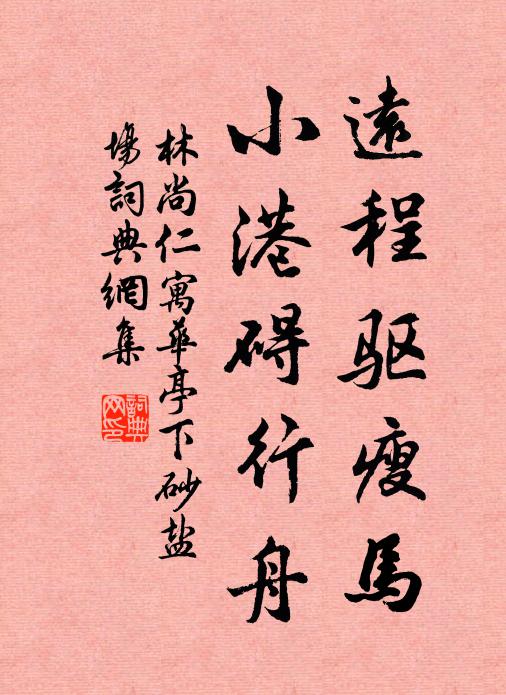 遠程驱瘦馬
小港碍行舟
林尚仁寓華亭下砂盐
場詞典網集
詞典网印